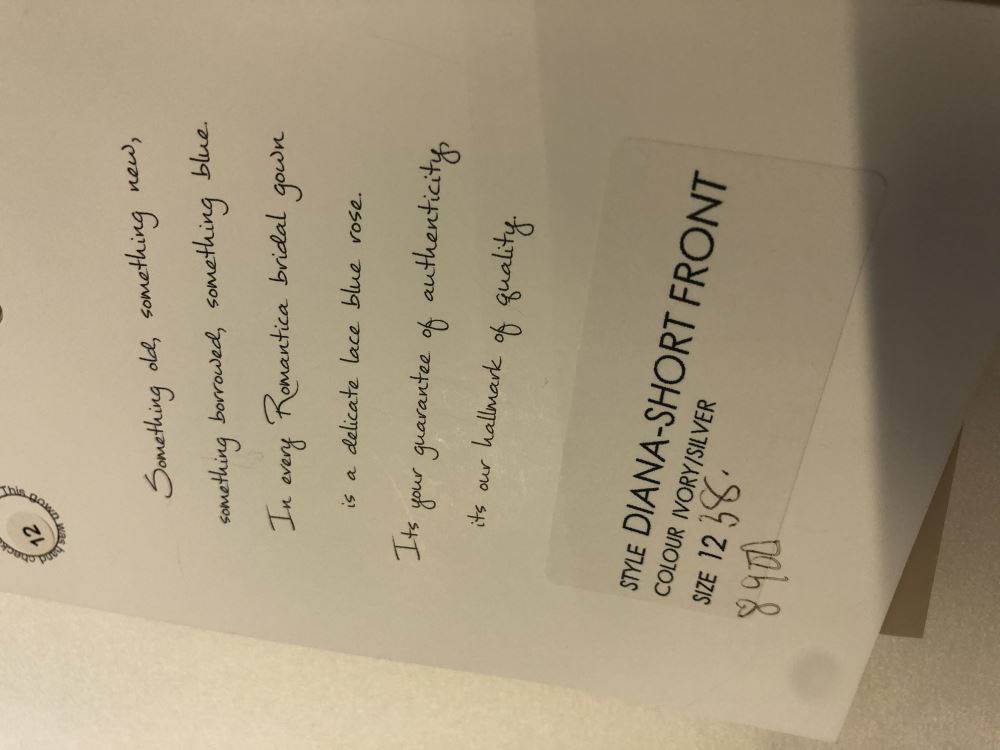 This gown was hand checked
12
Something old, something new,
something borrowed, something blue.
In every Romantica bridal gown
is a delicate lace blue rose.
Its your guarantee of authenticity,
its our hallmark of quality.
STYLE DIANA-SHORT FRONT
COLOUR IVORY/SILVER
SIZE 12 38.